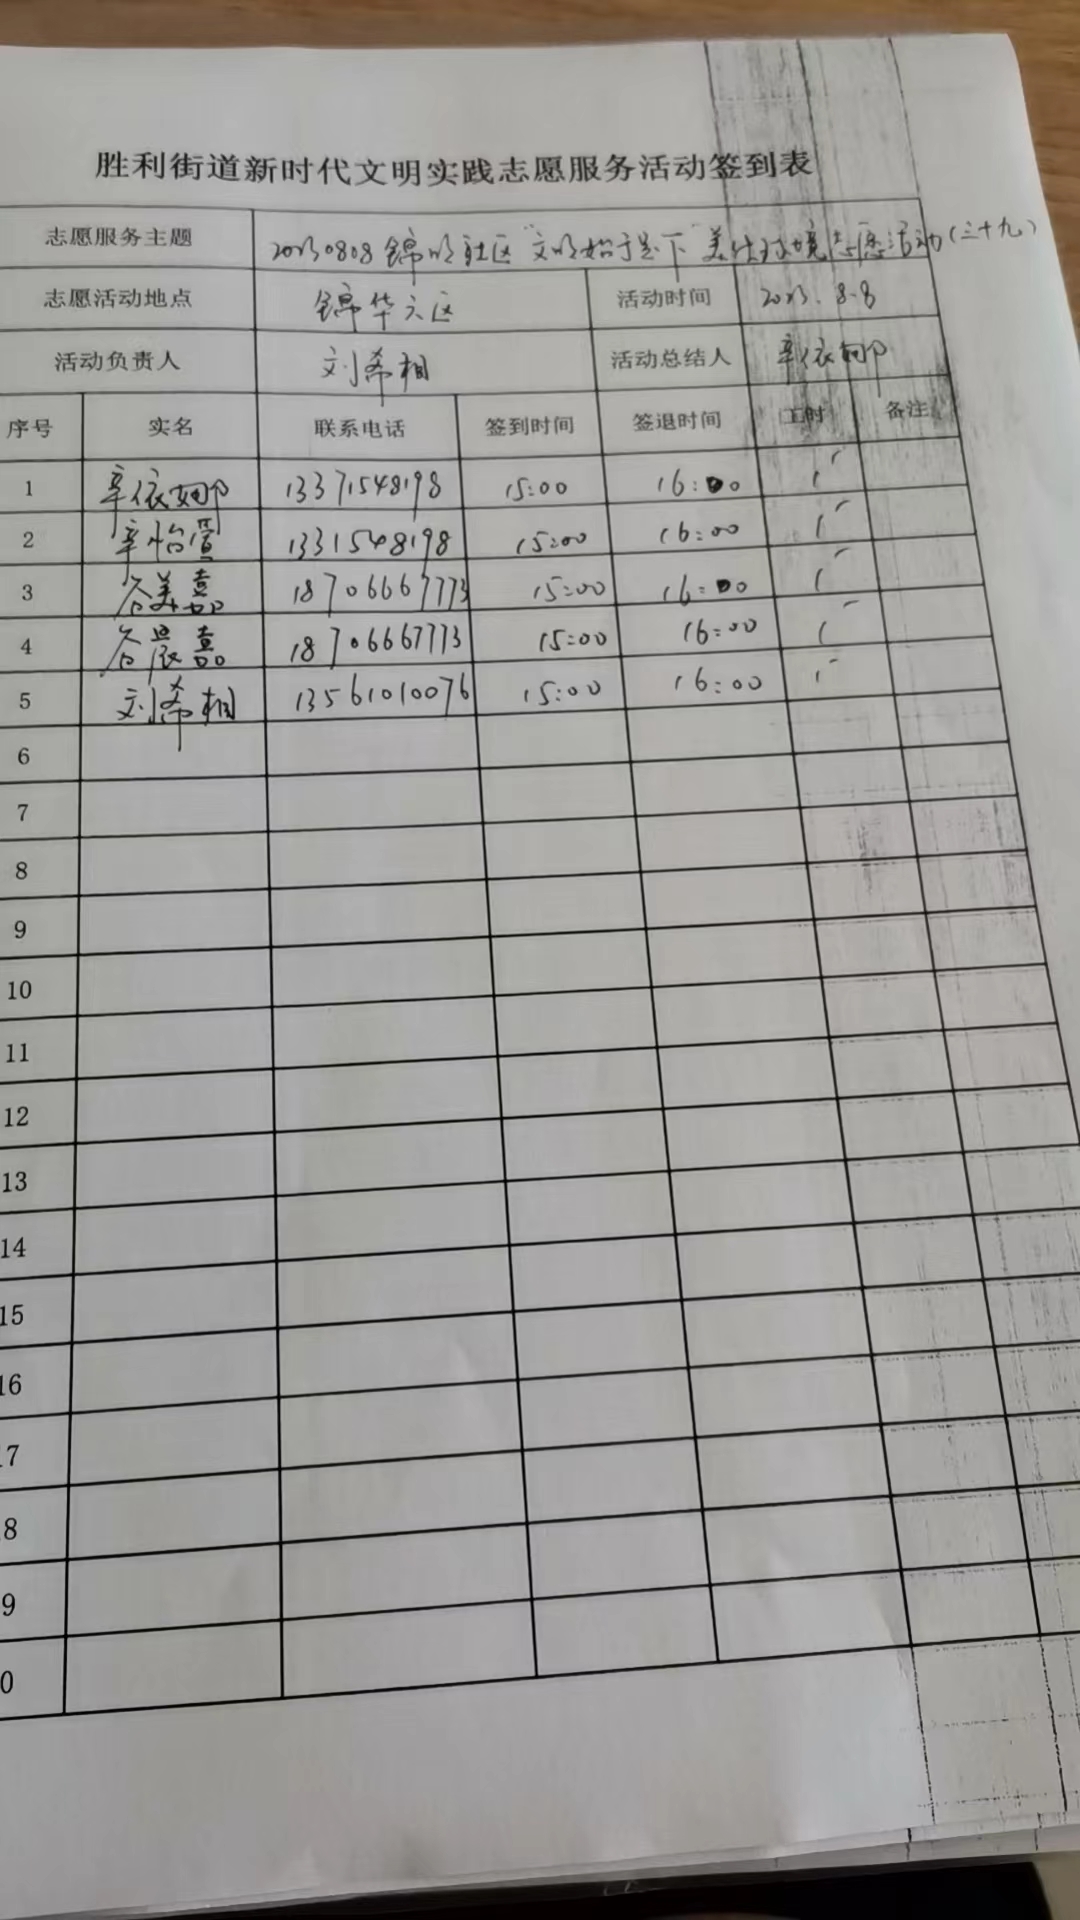 胜利街道新时代文明实践志愿服务活动签到表
志愿服务主题 20230808锦明社区"文明始于足下"美化环境志愿活动(三十九)
志愿活动地点 锦华六区 活动时间 2023.8.8
活动负责人 刘希相 活动总结人 辛依娜
序号 实名 联系电话 签到时间 签退时间 工时 备注
1 辛依娜 13371548198 15:00 16:00 1
2 辛怡萱 1331548198 15:00 16:00 1
3 谷美嘉 18706667773 15:00 16:00 1
4 谷晨嘉 18706667773 15:00 16:00 1
5 刘希相 13561010076 15:00 16:00 1
6
7
8
9
10
11
12
13
14
15
16
17
8
9
0